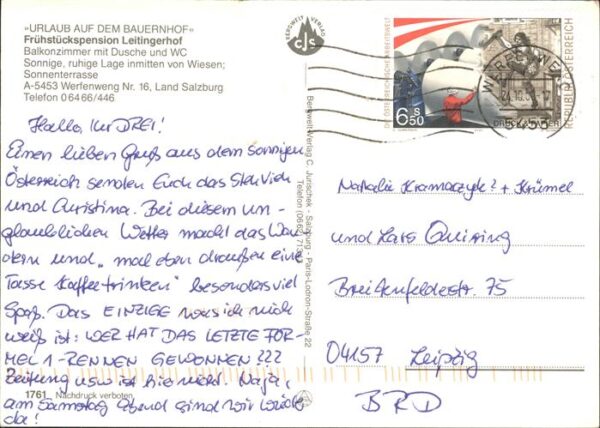 »URLAUB AUF DEM BAUERNHOF«
Frühstückspension Leitingerhof
Balkonzimmer mit Dusche und WC
Sonnige, ruhige Lage inmitten von Wiesen;
Sonnenterrasse
A-5453 Werfenweng Nr. 16, Land Salzburg
Telefon 0 64 66/446
Hallo, Ihr DREI!
Einen lieben Gruß aus dem sonnigen
Österreich senden Euch das
und Christina. Bei diesem un-
glaublichen Wetter macht das Wan-
dern und "mal eben draußen eine
Tasse Kaffee trinken" besonders viel
Spaß. Das EINZIGE was ich nich
weiß ist: WER HAT DAS LETZTE FOR-
MEL 1-RENNEN GEWONNEN ???
Zeitung usw ist hier nicht. Naja,
am Samstag Abend sind wir wieder
da!
1761 Nachdruck verboten
BERGWELT VERLAG
CJS
Bergwelt-Verlag C. Jurischek - Salzburg - Paris-Lodron-Straße 22
DIE ÖSTERREICHISCHE ARBEITSWELT
6 S 50
REPUBLIK ÖSTERREICH
5453
Natalie + Krümel
und Lars Quiring
Breitenfelderstr. 75
04157 Leipzig
BRD